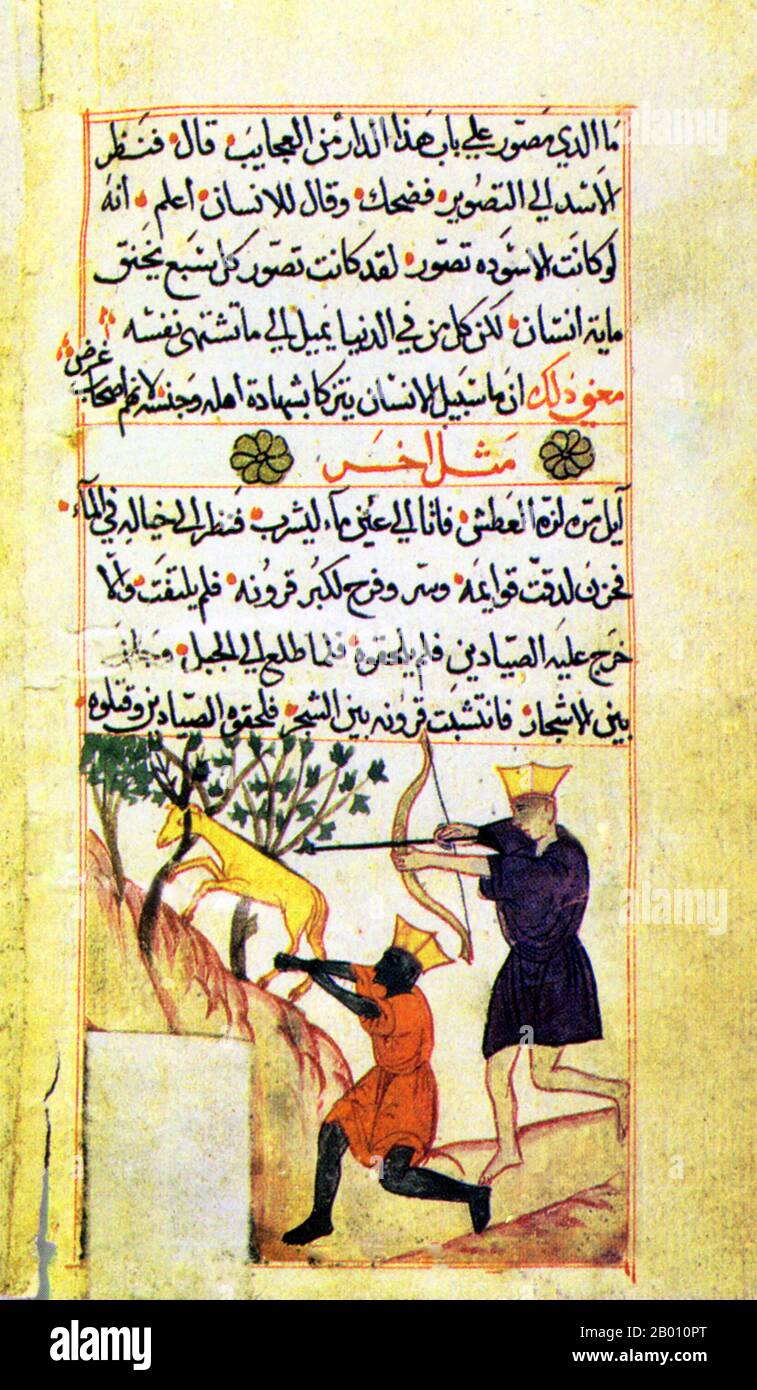 ما الذي مصور علي باب هذا الدار من العجايب قال فنظر
الاسد الي التصوير فضحك وقال للانسان أعلم أنه
لو كانت الاسوده تصور لقد كانت تصور كل سبع يخنق
ماية انسان لكن كل من في الدنيا يميل الي ما تشتهى نفسه
معني ذلك ان ما سبيل الانسان يتزكا بشهادة اهله وجنسه لانهم اصحاب
غرض
مثل اخر
آيل مره لزه العطش فاتا الي عين مآء ليشرب فنظر الي خياله في المآء
فحزن لدقت قوايمه وسر وفرح لكبر قرونه فلم يلتفت والا
خرج عليه الصيادين فلم يلحقوه فلما طلع الي الجبل
بين الاشجار فانتشبت قرونه بين الشجر فلحقوه الصيادين وقتلوه
alamy
alamy
alamy
Image ID: 2B010PT
www.alamy.com